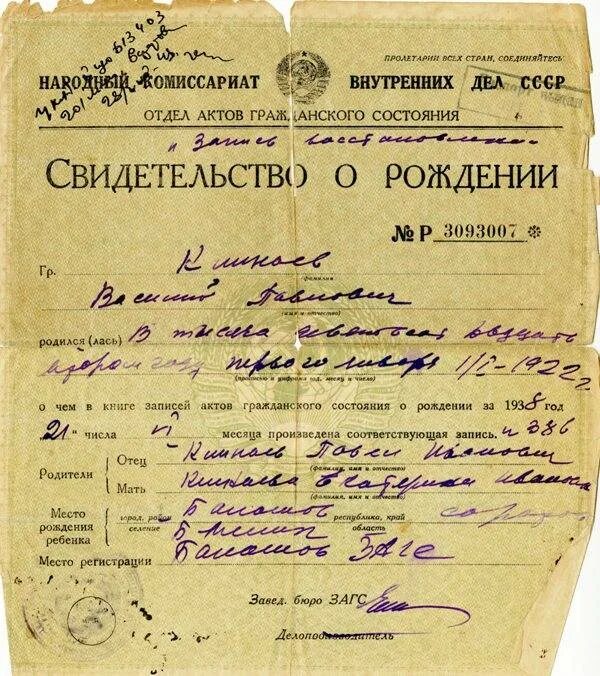 ПРОЛЕТАРИИ ВСЕХ СТРАН, СОЕДИНЯЙТЕСЬ
НАРОДНЫЙ КОМИССАРИАТ ВНУТРЕННИХ ДЕЛ СССР
ОТДЕЛ АКТОВ ГРАЖДАНСКОГО СОСТОЯНИЯ
Запись восстановлена
СВИДЕТЕЛЬСТВО О РОЖДЕНИИ
№ Р 3093007
Гр. Климаев
(фамилия)
Василий Павлович
(имя и отчество)
родился (лась) В тысяча девятьсот двадцать
втором году первого января 1/I-1922 г
(прописью и цифрами год, месяц и число)
о чем в книге записей актов гражданского состояния о рождении за 1938 год
21 числа VI месяца произведена соответствующая запись. № 386
Родители Отец Климаев Павел Иванович
(фамилия, имя и отчество)
Мать Климаева Екатерина Ивановна
(фамилия, имя и отчество)
Место рождения ребенка город, район Балашов республика, край
селение область
Место регистрации Балашов ЗАГС
Завед. бюро ЗАГС
Делопроизводитель